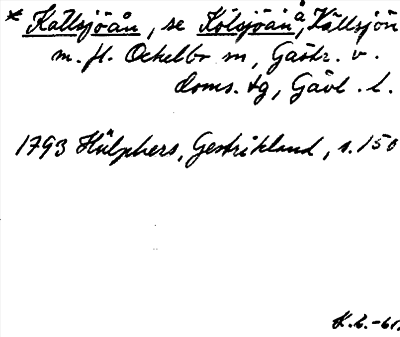 * Källsjöån, se Kölsjöån å, Källsjön
m. fl. Ockelbo sn, Gästr. v.
doms. tg, Gävl. l.
1793 Hülphers, Gestrikland, s. 150
K.L.-61.